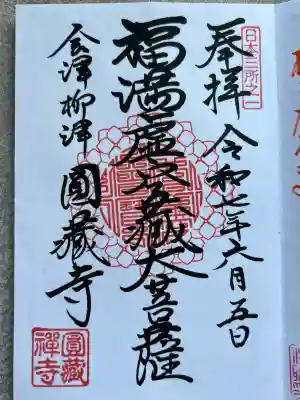 日本三所之一
奉拝 令和七年六月五日
福満虚空蔵大菩薩
会津柳津 圓藏寺
圓藏禅寺